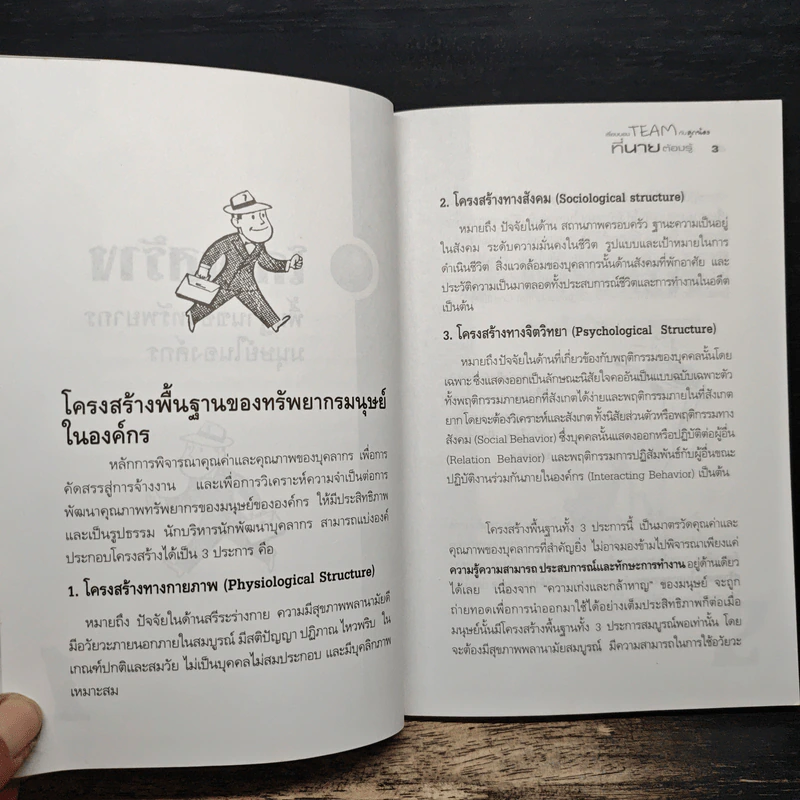 โครงสร้างพื้นฐานของทรัพยากรมนุษย์
ในองค์กร
หลักการพิจารณาคุณค่าและคุณภาพของบุคลากร เพื่อการ
คัดสรรสู่การจ้างงาน และเพื่อการวิเคราะห์ความจำเป็นต่อการ
พัฒนาคุณภาพทรัพยากรของมนุษย์ขององค์กร ให้มีประสิทธิภาพ
และเป็นรูปธรรม นักบริหารนักพัฒนาบุคลากร สามารถแบ่งองค์
ประกอบโครงสร้างได้เป็น 3 ประการ คือ
1. โครงสร้างทางกายภาพ (Physiological Structure)
หมายถึง ปัจจัยในด้านสรีระร่างกาย ความมีสุขภาพพลานามัยดี
มีอวัยวะภายนอกภายในสมบูรณ์ มีสติปัญญา ปฏิภาณ ไหวพริบ ใน
เกณฑ์ปกติและสมวัย ไม่เป็นบุคคลไม่สมประกอบ และมีบุคลิกภาพ
เหมาะสม
TEAM
ที่นาย ต้องรู้ 3
2. โครงสร้างทางสังคม (Sociological structure)
หมายถึง ปัจจัยในด้าน สถานภาพครอบครัว ฐานะความเป็นอยู่
ในสังคม ระดับความมั่นคงในชีวิต รูปแบบและเป้าหมายในการ
ดำเนินชีวิต สิ่งแวดล้อมของบุคลากรนั้นด้านสังคมที่พักอาศัย และ
ประวัติความเป็นมาตลอดทั้งประสบการณ์ชีวิตและการทำงานในอดีต
เป็นต้น
3. โครงสร้างทางจิตวิทยา (Psychological Structure)
หมายถึง ปัจจัยในด้านที่เกี่ยวข้องกับพฤติกรรมของบุคคลนั้นโดย
เฉพาะ ซึ่งแสดงออกเป็นลักษณะนิสัยใจคออันเป็นแบบฉบับเฉพาะตัว
ทั้งพฤติกรรมภายนอกที่สังเกตได้ง่ายและพฤติกรรมภายในที่สังเกต
ยาก โดยจะต้องวิเคราะห์และสังเกต ทั้งนิสัยส่วนตัวหรือพฤติกรรมทาง
สังคม (Social Behavior) ซึ่งบุคคลนั้นแสดงออกหรือปฏิบัติต่อผู้อื่น
(Relation Behavior) และพฤติกรรมการปฏิสัมพันธ์กับผู้อื่นขณะ
ปฏิบัติงานร่วมกันภายในองค์กร (Interacting Behavior) เป็นต้น
โครงสร้างพื้นฐานทั้ง 3 ประการนี้ เป็นมาตรวัดคุณค่าและ
คุณภาพของบุคลากรที่สำคัญยิ่ง ไม่อาจมองข้ามไปพิจารณาเพียงแค่
ความรู้ความสามารถ ประสบการณ์และทักษะการทำงาน อยู่ด้านเดียว
ได้เลย เนื่องจาก “ความเก่งและกล้าหาญ” ของมนุษย์ จะถูก
ถ่ายทอดเพื่อการนำออกมาใช้ได้อย่างเต็มประสิทธิภาพก็ต่อเมื่อ
มนุษย์นั้นมีโครงสร้างพื้นฐานทั้ง 3 ประการสมบูรณ์พอเท่านั้น โดย
จะต้องมีสุขภาพพลานามัยสมบูรณ์ มีความสามารถในการใช้อวัยวะ